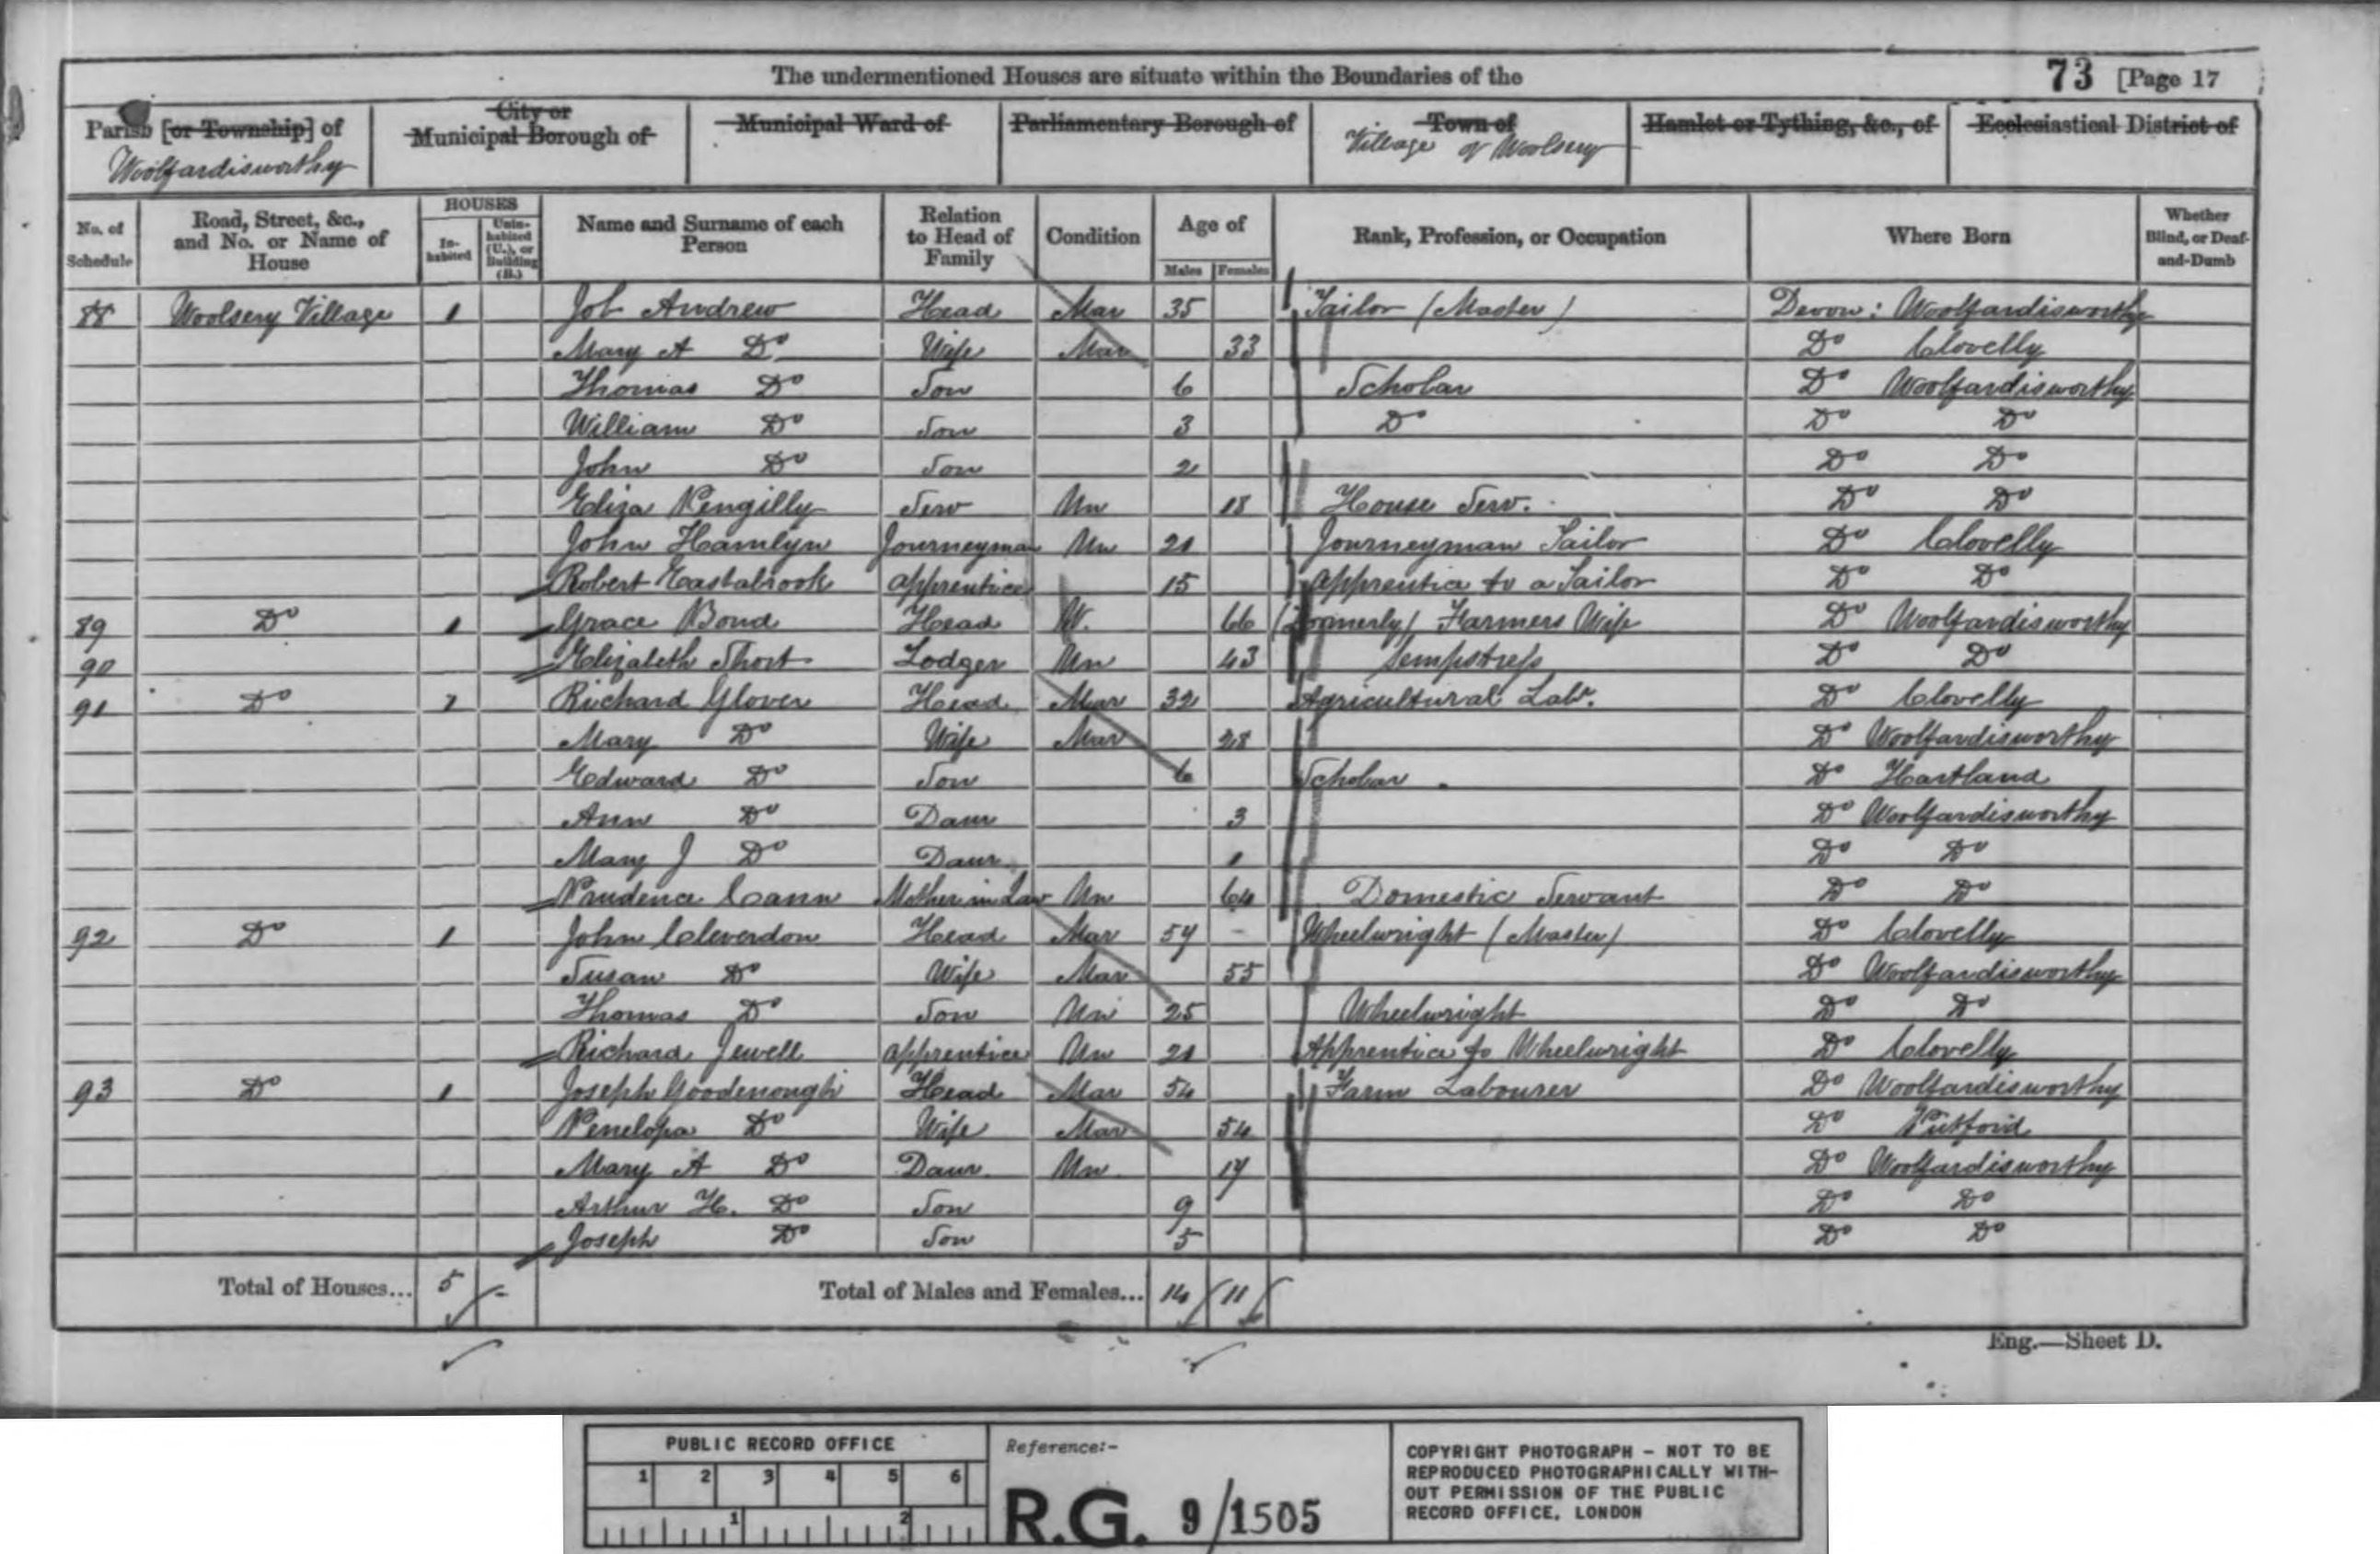 The undermentioned Houses are situate within the Boundaries of the
73 [Page 17
Parish [or Township] of
Woolfardisworthy
City or
Municipal Borough of
Municipal Ward of
Parliamentary Borough of
Town of
Village of Woolsery
Hamlet or Tything, &c., of
Ecclesiastical District of
No. of Schedule
Road, Street, &c., and No. or Name of House
HOUSES
In-habited
Unin-habited (U.), or Building (B.)
Name and Surname of each Person
Relation to Head of Family
Condition
Age of
Males Females
Rank, Profession, or Occupation
Where Born
Whether Blind, or Deaf-and-Dumb
88 Woolsery Village 1 Job Andrew Head Mar 35 Tailor (Master) Devon: Woolfardisworthy
Mary A Do Wife Mar 33 Do Clovelly
Thomas Do Son 6 Scholar Do Woolfardisworthy
William Do Son 3 Do Do Do
John Do Son 2 Do Do
Eliza Pengilly Serv Un 18 House Serv. Do Do
John Hamlyn Journeyman Un 21 Journeyman Tailor Do Clovelly
Robert Eastabrook apprentice 15 apprentice to a Tailor Do Do
89 Do 1 Grace Bond Head W. 66 (Formerly) Farmers Wife Do Woolfardisworthy
90 Elizabeth Short Lodger Un 43 Sempstress Do Do
91 Do 1 Richard Glover Head Mar 32 Agricultural Labr. Do Clovelly
Mary Do Wife Mar 28 Do Woolfardisworthy
Edward Do Son 6 Scholar Do Hartland
Ann Do Daur 3 Do Woolfardisworthy
Mary J Do Daur 1 Do Do
Prudence Cann Mother in Law Un 64 Domestic Servant Do Do
92 Do 1 John Cleverdon Head Mar 57 Wheelwright (Master) Do Clovelly
Susan Do Wife Mar 55 Do Woolfardisworthy
Thomas Do Son Un 25 Wheelwright Do Do
Richard Jewell apprentice Un 21 Apprentice to Wheelwright Do Clovelly
93 Do 1 Joseph Goodenough Head Mar 54 Farm Labourer Do Woolfardisworthy
Penelopa Do Wife Mar 54 Do Putford
Mary A Do Daur. Un 17 Do Woolfardisworthy
Arthur H. Do Son 9 Do Do
Joseph Do Son 5 Do Do
Total of Houses... 5 - Total of Males and Females... 14 11
Eng.—Sheet D.
PUBLIC RECORD OFFICE
1 2 3 4 5 6
1 2
Reference:-
R.G. 9/1505
COPYRIGHT PHOTOGRAPH - NOT TO BE
REPRODUCED PHOTOGRAPHICALLY WITH-
OUT PERMISSION OF THE PUBLIC
RECORD OFFICE, LONDON